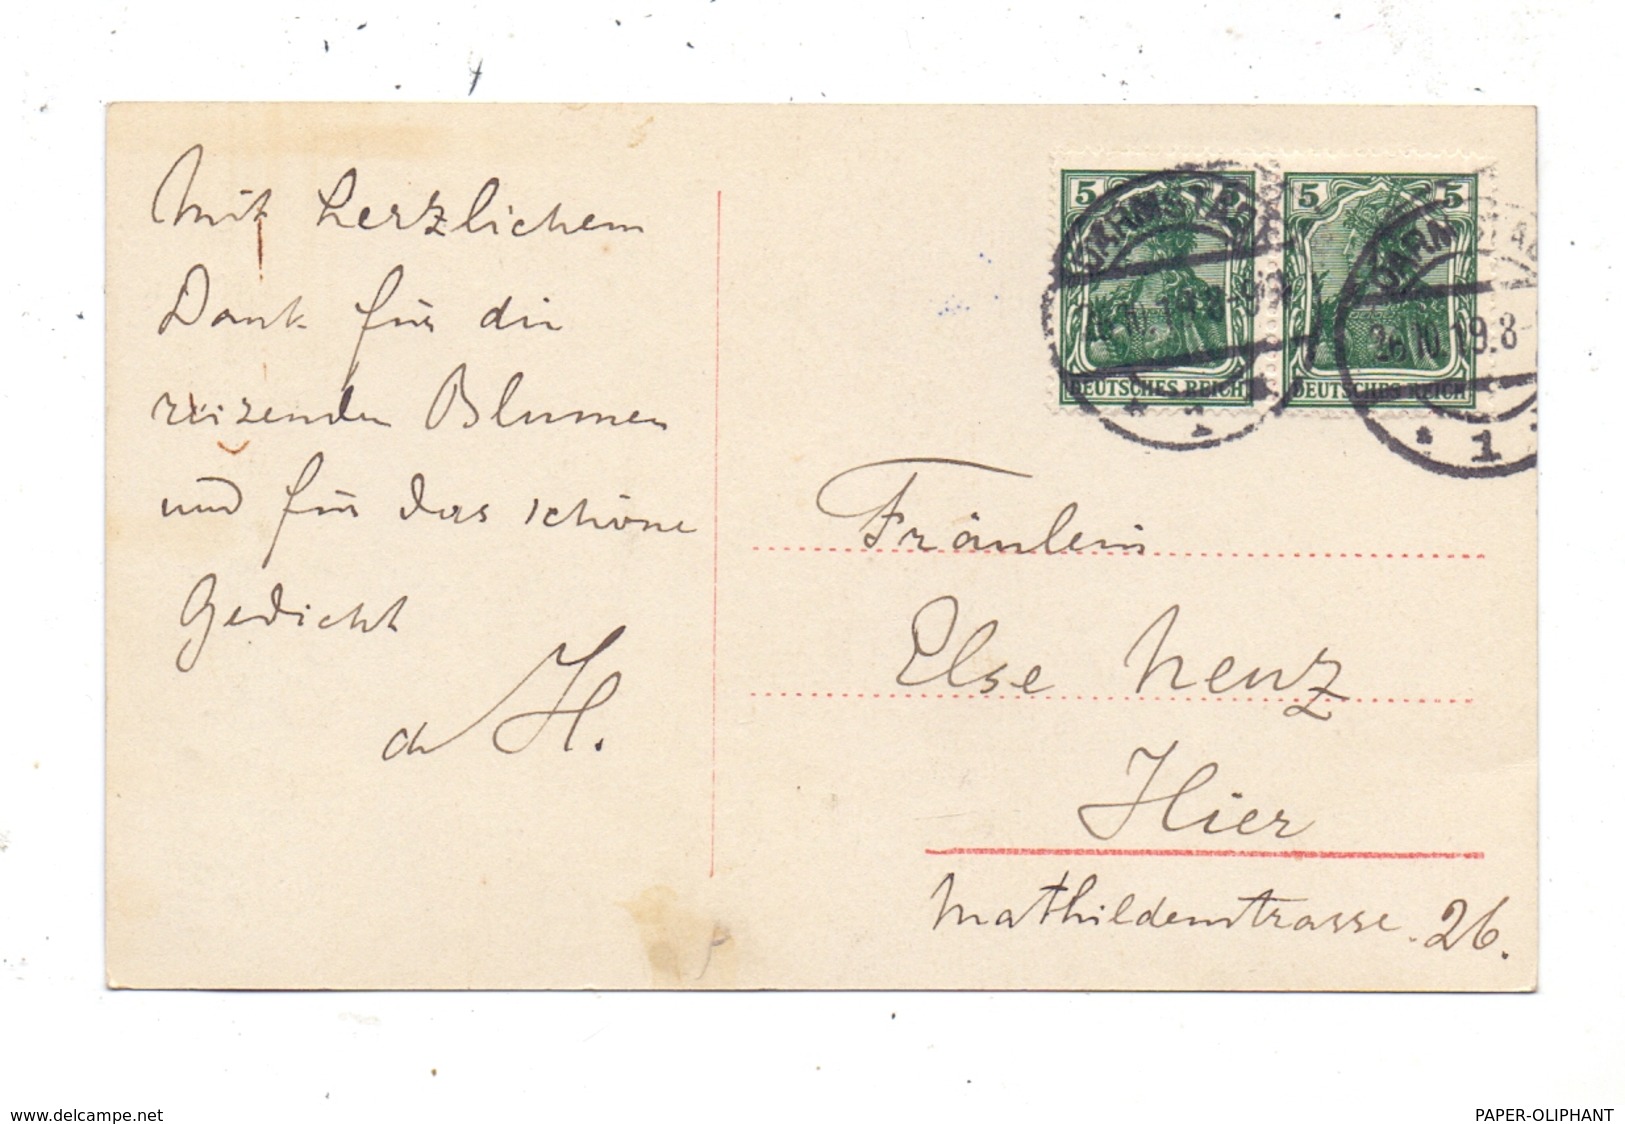 Mit herzlichem
Dank für die
reizenden Blumen
und für das schöne
Gedicht
H.
5 5
DEUTSCHES REICH
5 5
DEUTSCHES REICH
DARMSTADT
26.10.19.8-9
* 1
DARMSTADT
26.10.19.8-
* 1
Fräulein
Else Nenz
Hier
Mathildenstrasse. 26.
www.delcampe.net
PAPER-OLIPHANT